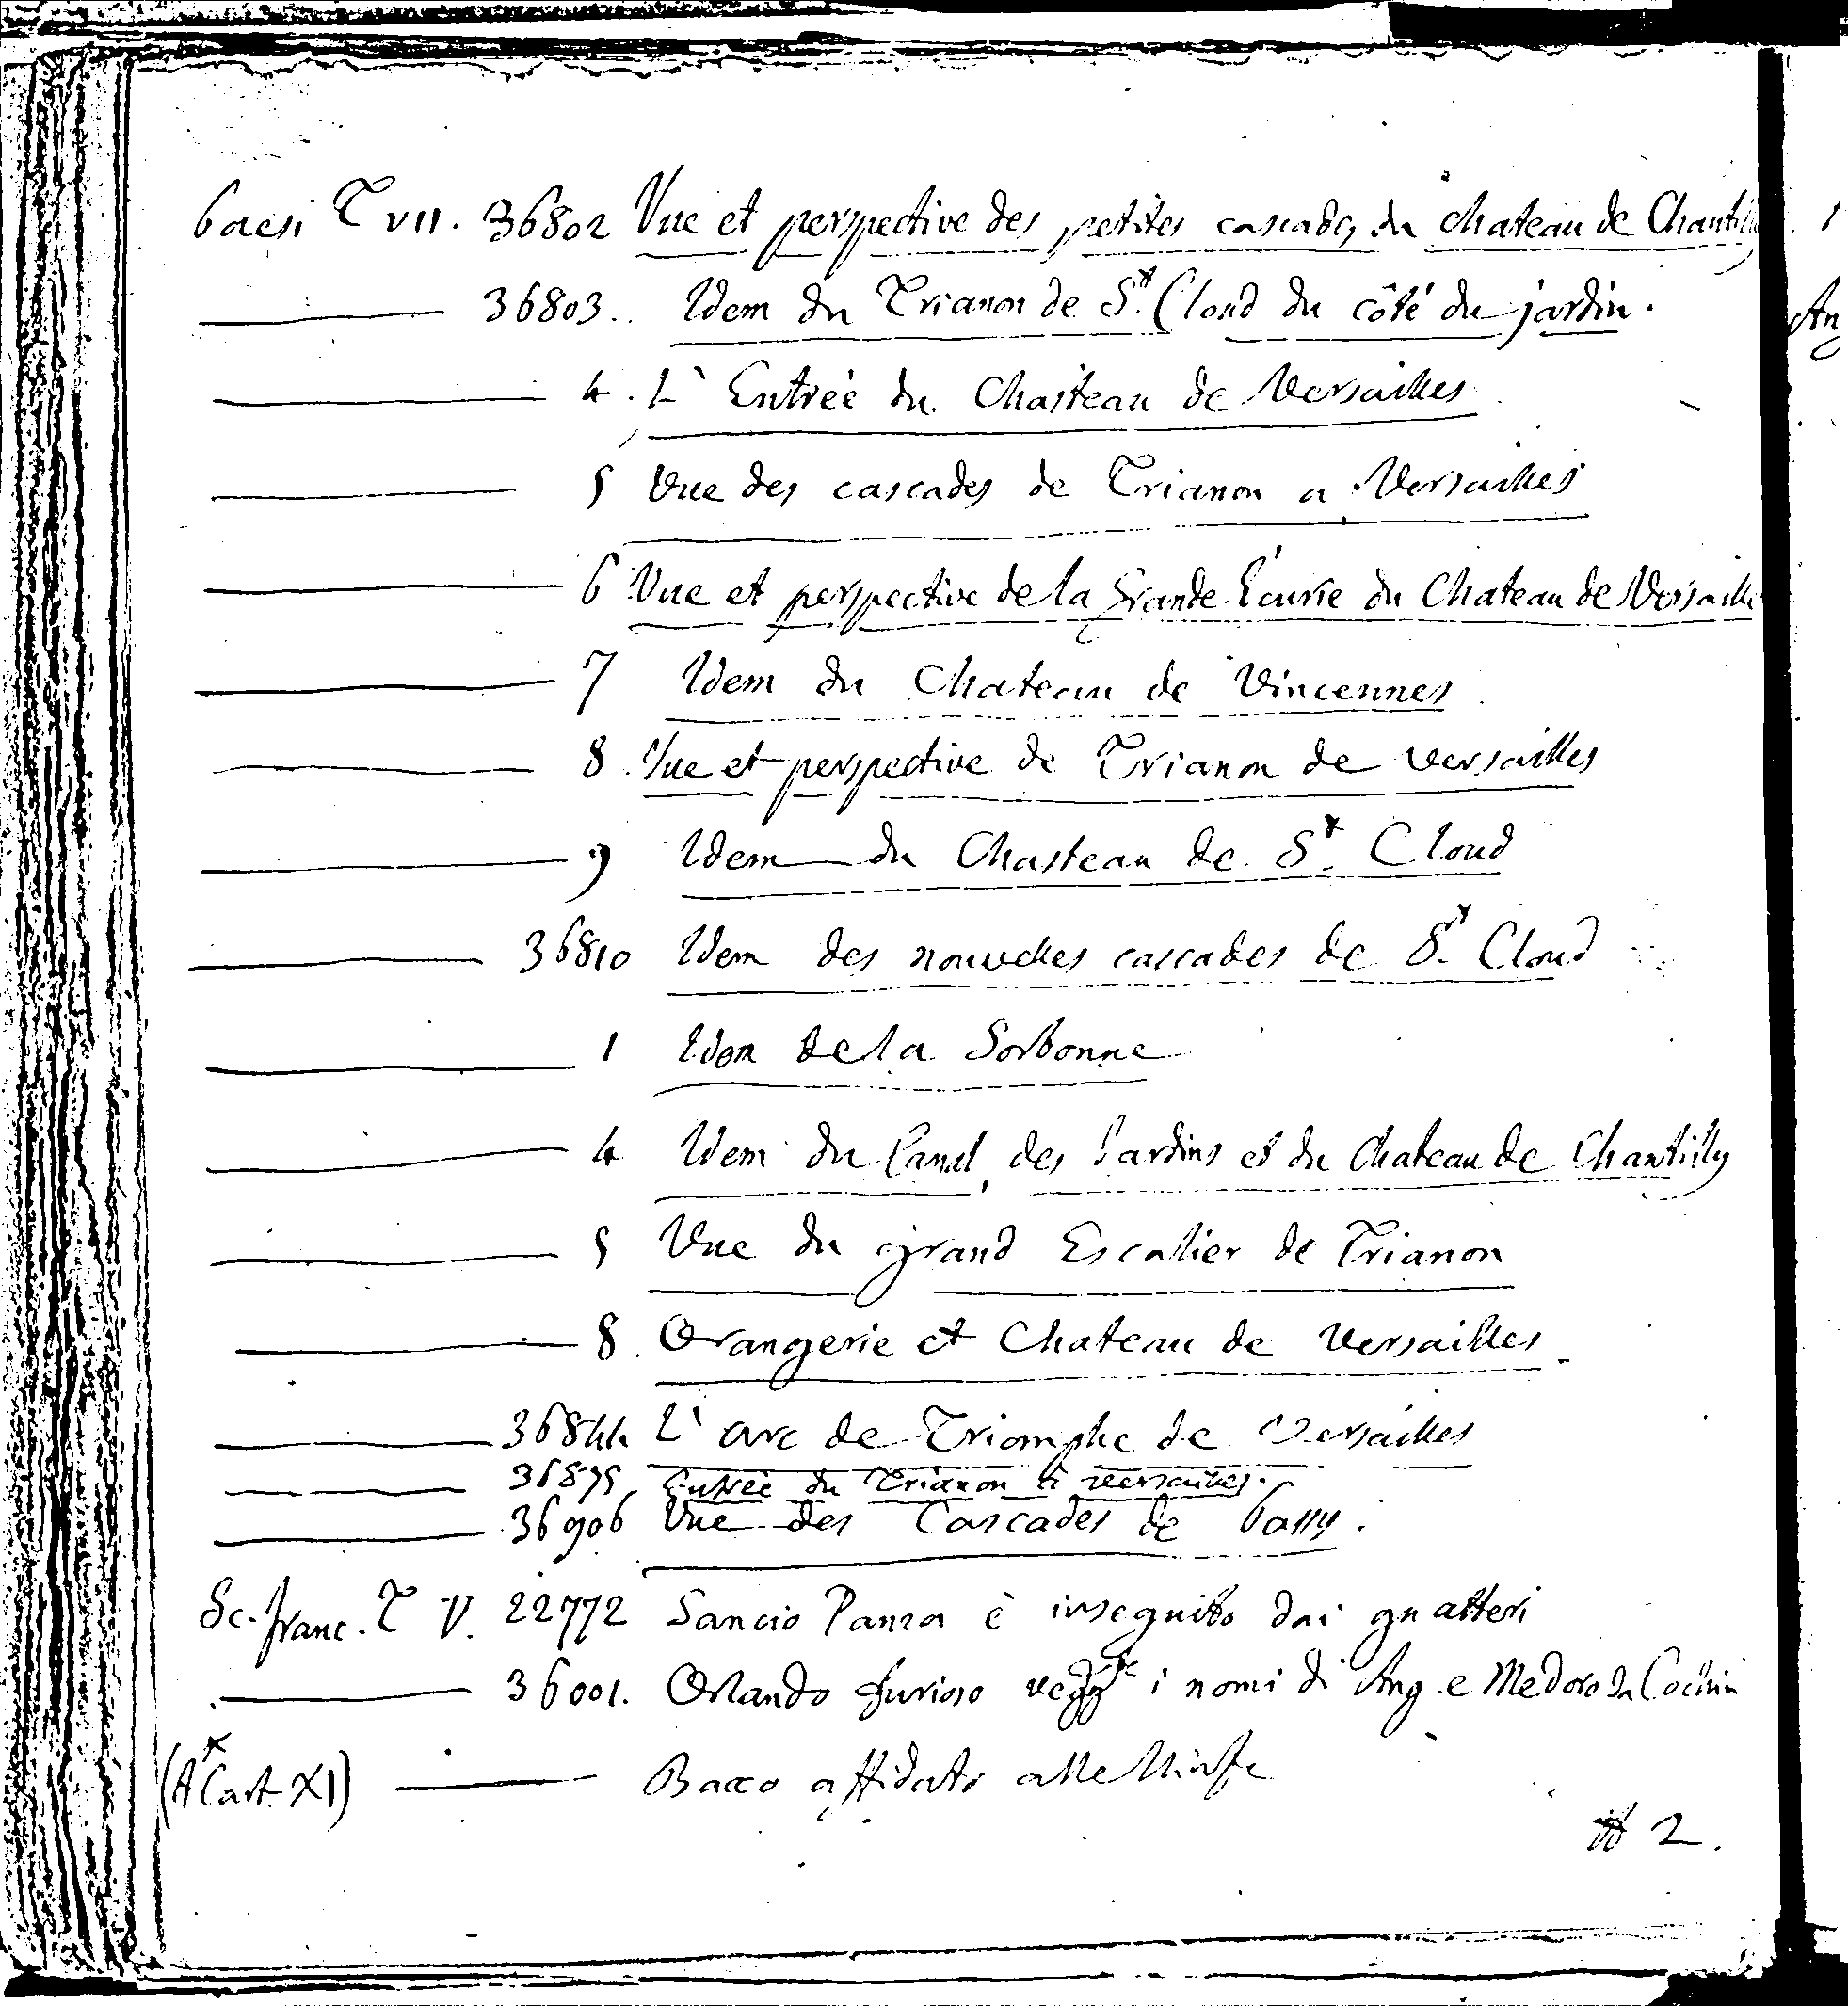 Paesi T VII. 36802 Vue et perspective des petites cascades du chateau de Chantilly
36803.. Idem du Trianon de St. Cloud du côté du jardin.
4. L' Entrée du Chasteau de Versailles
5 Vue des cascades de Trianon a Versailles
6 Vue et perspective de la Grande Écurie du Chateau de Versailles
7 Idem du Chateau de Vincennes
8. Vue et perspective de Trianon de Versailles
9 Idem du Chasteau de St. Cloud
36810 Idem des nouvelles cascades de St. Cloud
1 Idem de la Sorbonne
4 Idem du Canal, des Jardins et du Chateau de Chantilly
5 Vue du grand Escalier de Trianon
8. Orangerie et Chateau de Versailles
36844 L' arc de Triomphe de Versailles
36895 Entrée du Trianon à Versailles.
36906 Vue des Cascades de Passy.
Sc. franc. T V. 22772 Sancio Panza è inseguito dai guatteri
36001. Orlando furioso i nomi di Ang. e Medoro da Cochin
(At Cart XI) Bacco affidato alle Ninfe
2.